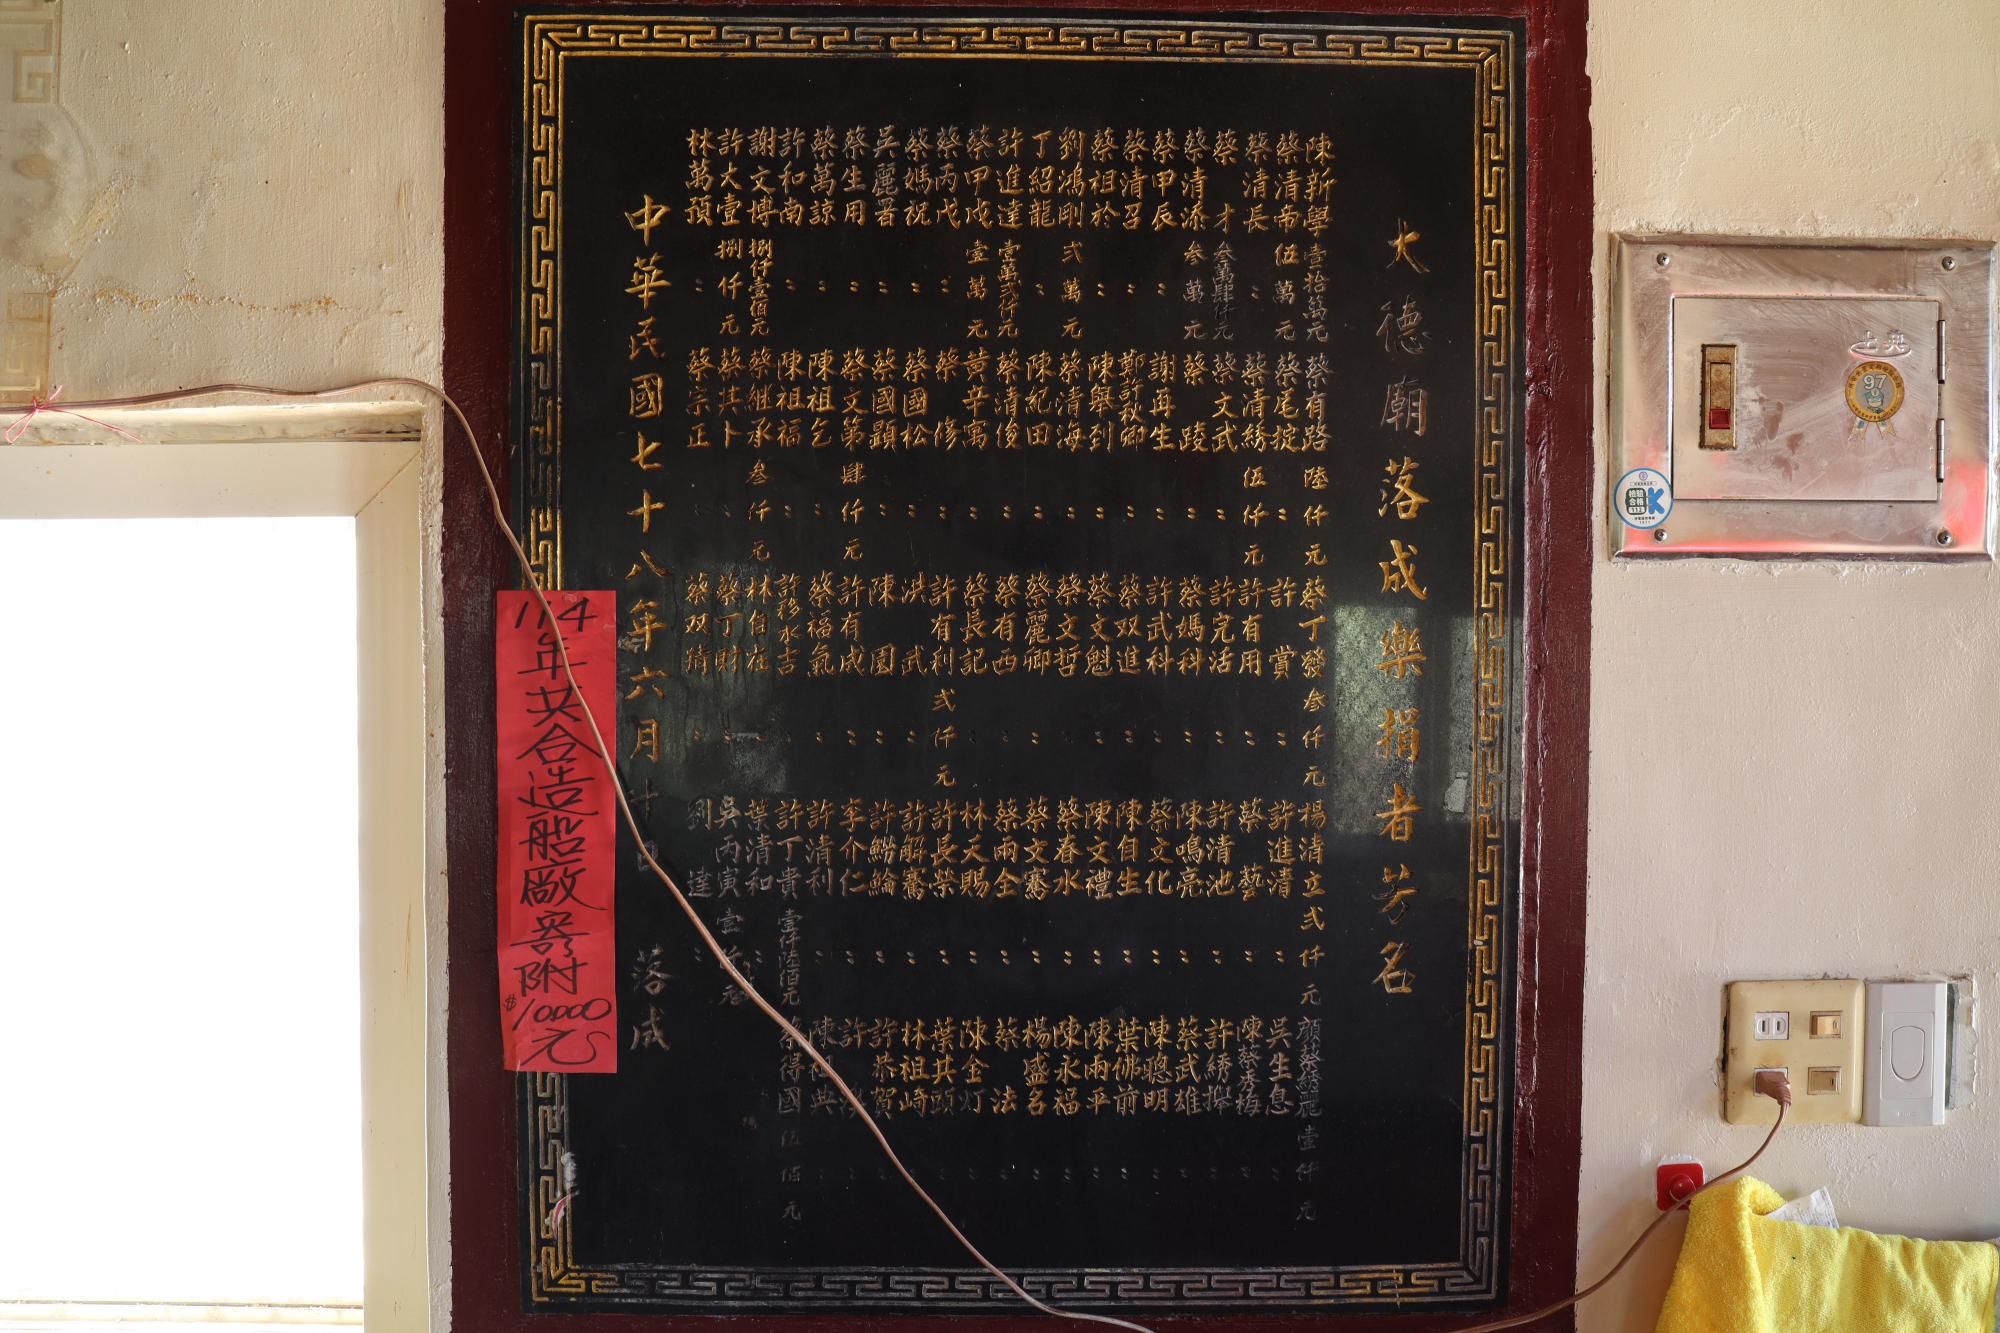 大德廟落成樂捐者芳名
陳新學壹拾萬元
蔡清帝伍萬元
蔡清長〃
蔡才參萬肆仟元
蔡清添參萬元
蔡甲辰〃
蔡清召〃
蔡祖於〃
劉鴻剛弍萬元
丁紹龍〃
許進達壹萬元
蔡甲戍壹萬元
蔡丙戍〃
蔡媽祝〃
吳麗署〃
蔡生用〃
蔡萬諒〃
許和南〃
謝文博捌仟壹佰元
許大壹捌仟元
林萬預〃
蔡有路陸仟元
蔡尾掟〃
蔡清綉伍仟元
蔡文武〃
蔡陵〃
謝再生〃
鄭許秋卿〃
陳舉到〃
蔡清海〃
陳紀田〃
蔡清俊〃
黃辛寓〃
蔡修〃
蔡國松〃
蔡國顯〃
蔡文第肆仟元
陳祖乞〃
陳祖福〃
蔡繼承叁仟元
蔡其卜〃
蔡宗正〃
蔡丁發參仟元
許賞〃
許有用〃
許完活〃
蔡媽科〃
許武科〃
蔡双進〃
蔡文魁〃
蔡文哲〃
蔡麗卿〃
蔡有西〃
蔡長記〃
許有利弍仟元
洪武〃
陳園〃
許有成〃
蔡福氣〃
許移水吉〃
林自在〃
蔡丁財〃
蔡双〃
楊清立弍仟元
許進清〃
蔡藝〃
許清池〃
陳鳴亮〃
蔡文化〃
陳自生〃
陳文禮〃
蔡春水〃
蔡文騫〃
蔡兩全〃
林天賜〃
許長榮〃
許解騫〃
許鰳鯩〃
李介仁〃
許清利〃
許丁貴壹仟陸佰元
葉清和〃
吳丙寅壹仟元
劉達〃
顏蔡綉麗壹仟元
吳生息〃
陳蔡秀梅〃
許綉攑〃
蔡武雄〃
陳聰明〃
葉佛前〃
陳兩平〃
陳永福〃
楊盛名〃
蔡法〃
陳金灯〃
葉其頭〃
林祖崎〃
許恭賀〃
許〃
陳祖典〃
蔡得國伍佰元
中華民國七十八年六月十日落成
114年共合造船廠寄附
$10000元
士英
97
檢驗合格
112
K